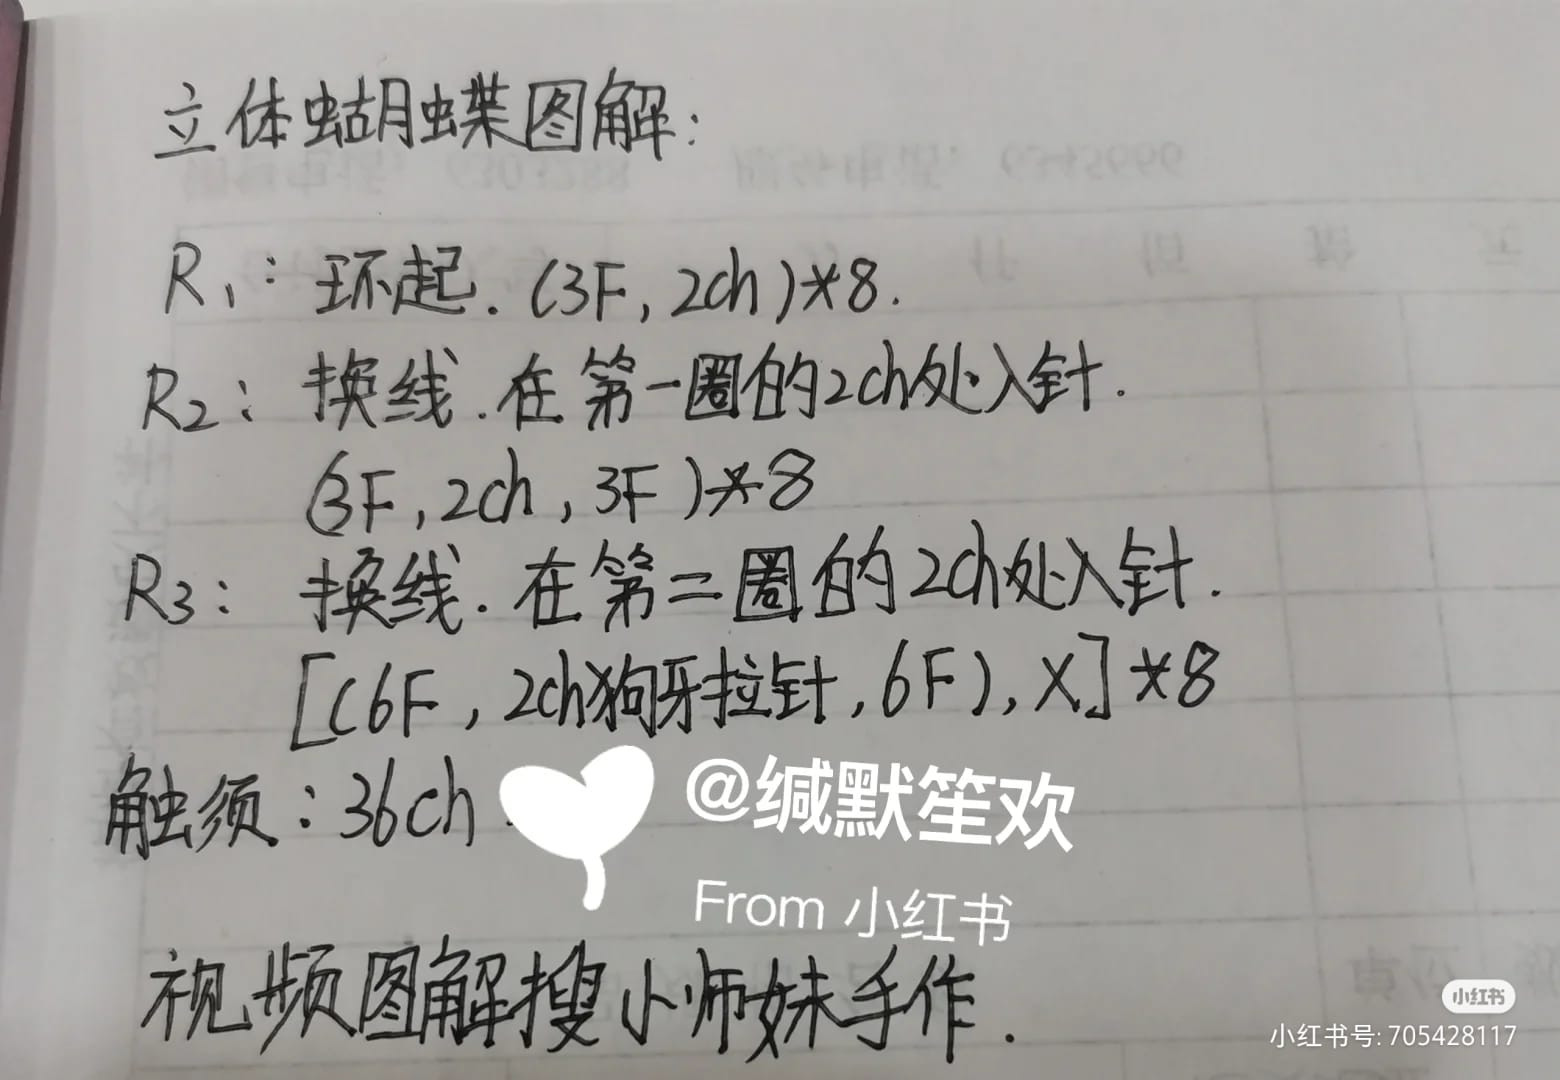 立体蝴蝶图解:
R1: 环起. (3F, 2ch)*8.
R2: 换线. 在第一圈的2ch处入针.
(3F, 2ch, 3F)*8
R3: 换线. 在第二圈的2ch处入针.
[(6F, 2ch狗牙拉针, 6F), X]*8
触须: 36ch.
@缄默笙欢
From 小红书
视频图解搜小师妹手作.
小红书
小红书号: 705428117